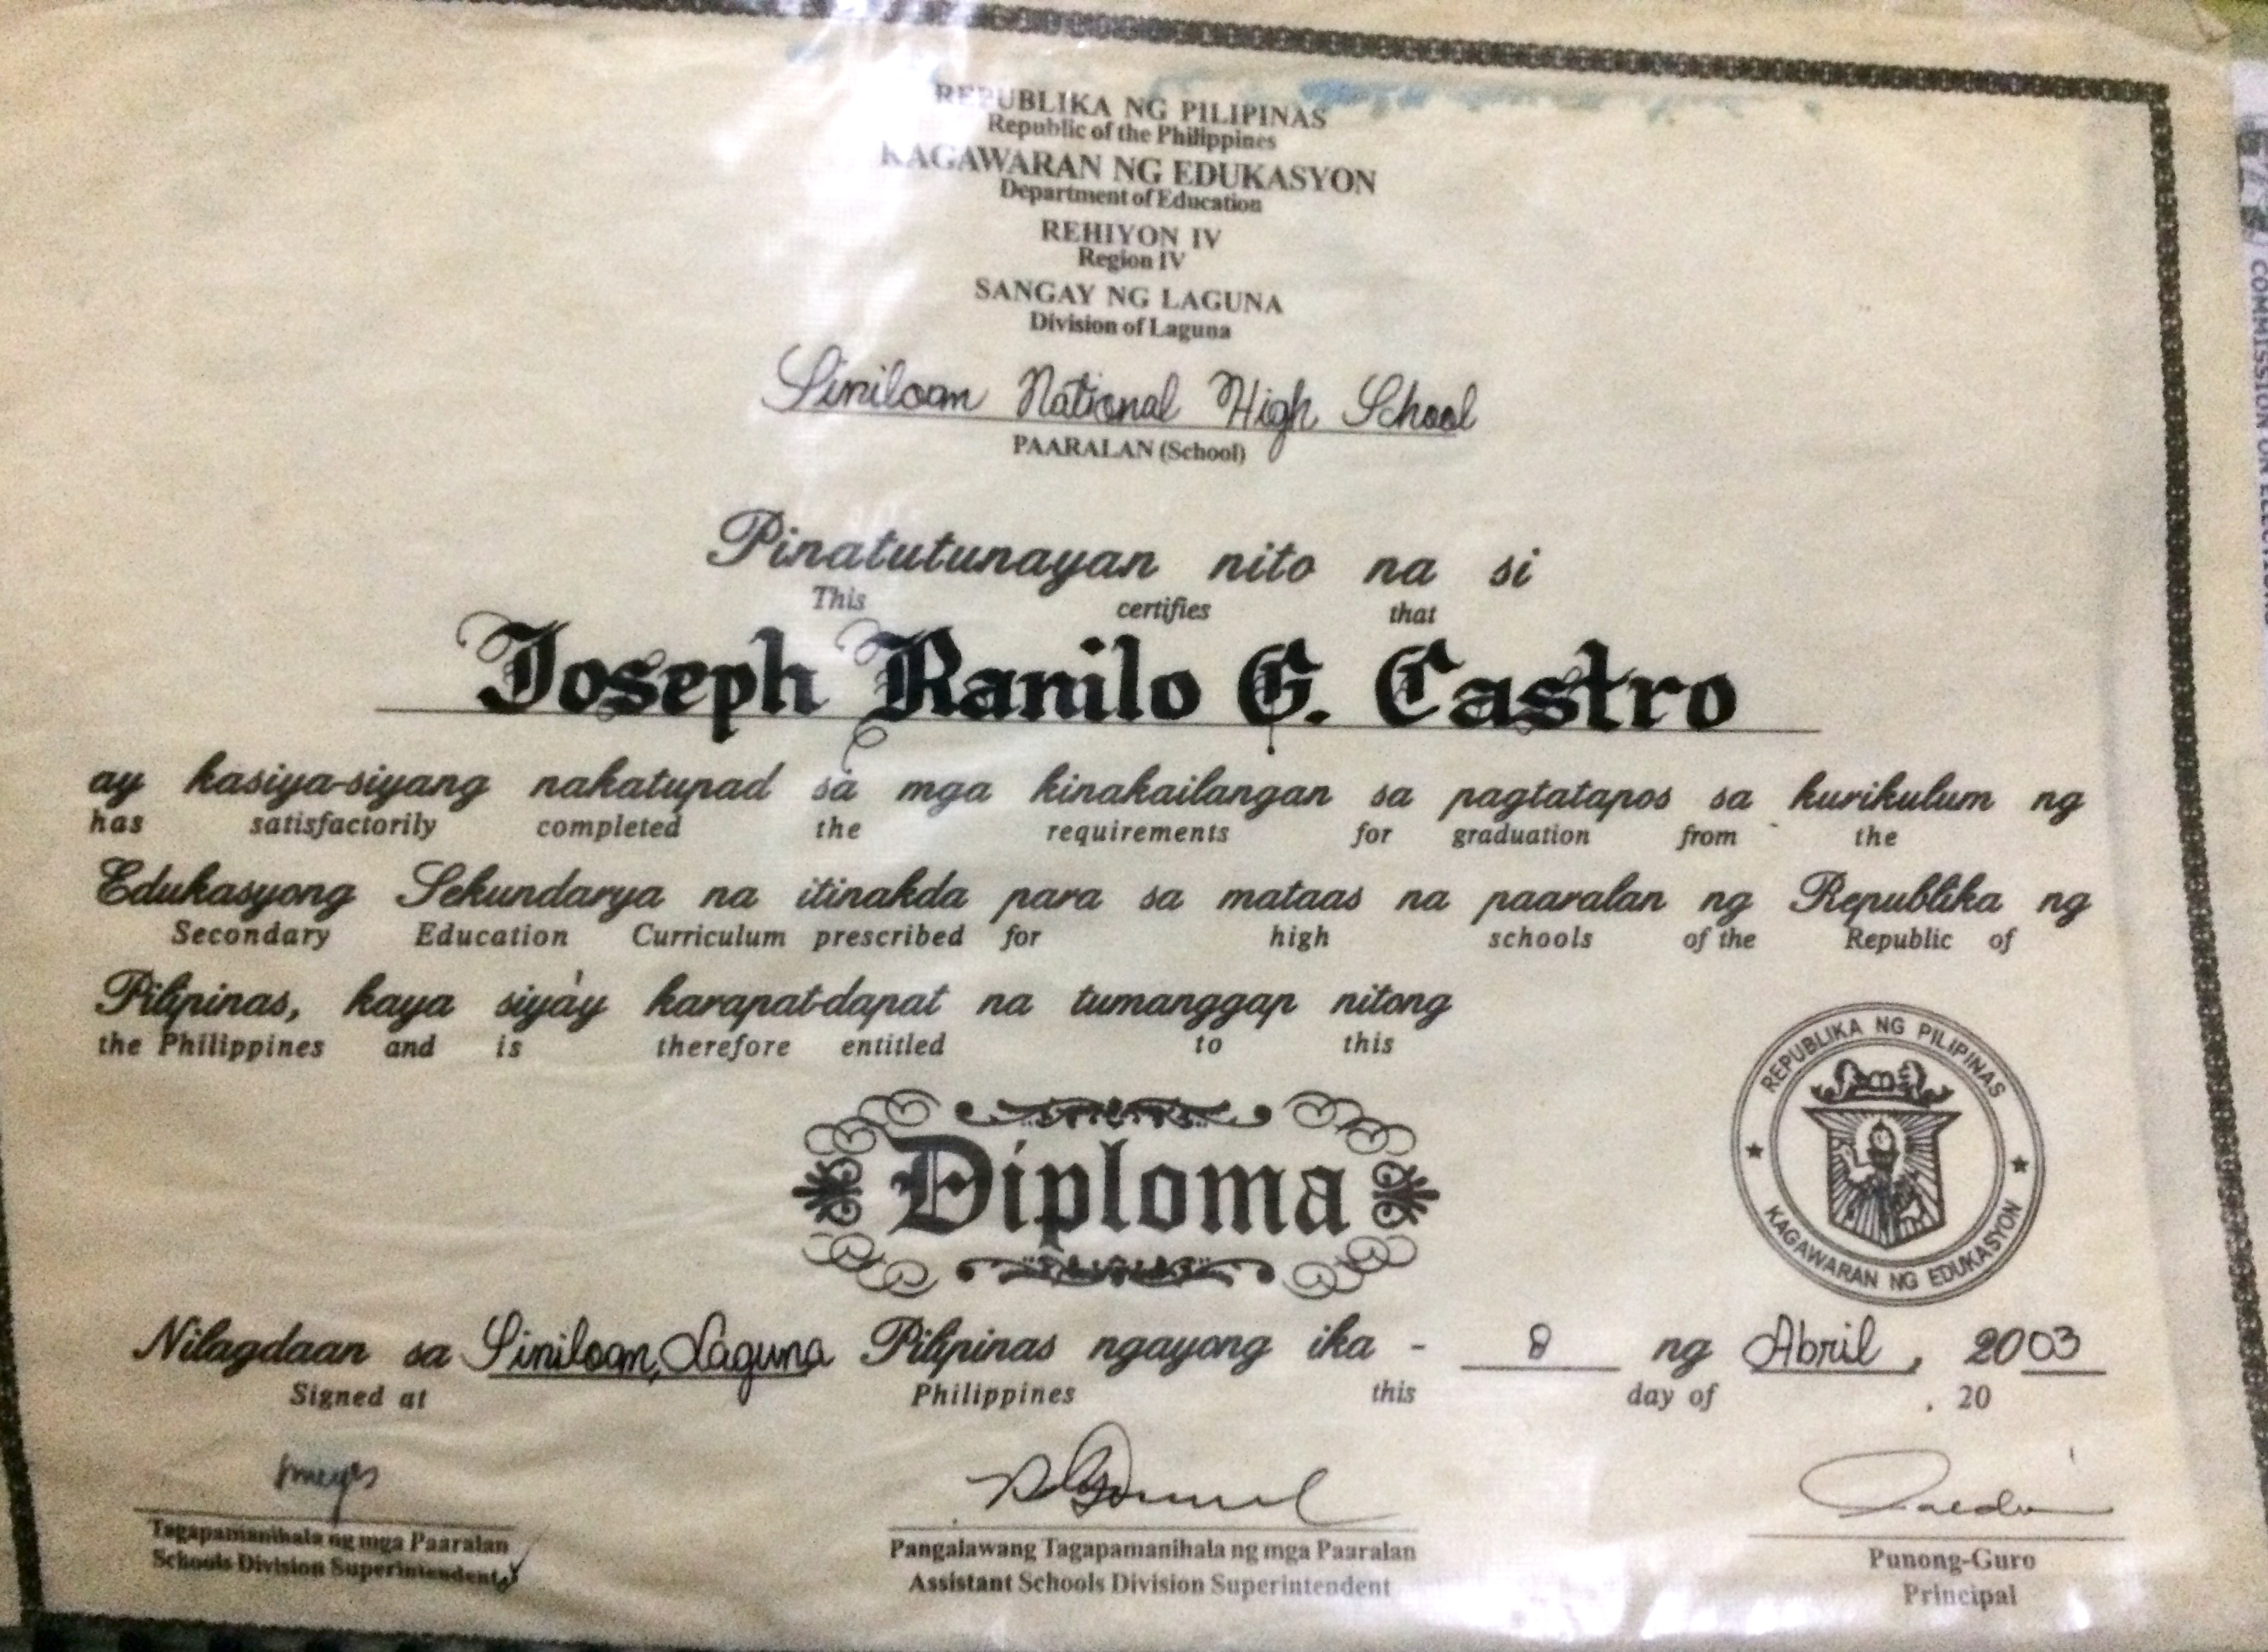 REPUBLIKA NG PILIPINAS
Republic of the Philippines
KAGAWARAN NG EDUKASYON
Department of Education
REHIYON IV
Region IV
SANGAY NG LAGUNA
Division of Laguna
Siniloan National High School
PAARALAN (School)
Pinatutunayan nito na si
This certifies that
Joseph Ranilo G. Castro
ay kasiya-siyang nakatupad sa mga kinakailangan sa pagtatapos sa kurikulum ng
has satisfactorily completed the requirements for graduation from the
Edukasyong Sekundarya na itinakda para sa mataas na paaralan ng Republika ng
Secondary Education Curriculum prescribed for high schools of the Republic of
Pilipinas, kaya siya'y karapat-dapat na tumanggap nitong
the Philippines and is therefore entitled to this
Diploma
REPUBLIKA NG PILIPINAS
KAGAWARAN NG EDUKASYON
Nilagdaan sa Siniloan, Laguna Pilipinas ngayong ika - 8 ng Abril, 2003
Signed at Philippines this day of , 20
Tagapamanihala ng mga Paaralan
Schools Division Superintendent
Pangalawang Tagapamanihala ng mga Paaralan
Assistant Schools Division Superintendent
Punong-Guro
Principal